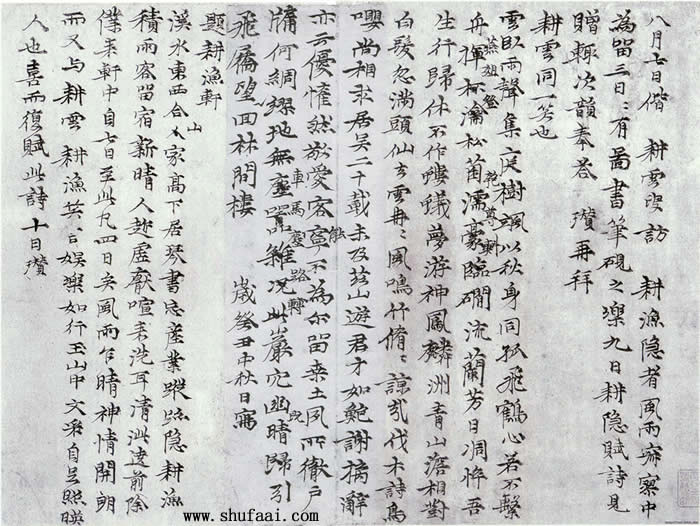 八月七日偕 耕雲叟訪 耕漁隱者風雨寂寥中
為留三日三日有圖書筆硯之樂九日耕隱賦詩見
贈輒次韻奉答 瓚再拜
耕雲同一笑也
雲臥雨聲集庭樹颯以秋身同孤飛鶴心若不繫
舟瀹松菌濡豪臨磵流蘭芳日凋悴吾
生行歸休不作螻蟻夢游神鳳麟洲青山澹相對
白髮忽滿頭仙去雲冉冉風鳴竹脩脩諒哉伐木詩鳥
嚶尚相求居吳二十載未及茲山遊君才如鮑謝摛辭
亦云優惟然敬愛客寧不為爾留桑土夙所徹戶
牖何綢繆地無塵囂雜況此巖穴幽晴歸引
車馬塵路轉
飛屬望回林間樓 歲癸丑中秋日寫
題耕漁軒
溪水東西合山家高下居琴書忘產業蹤跡隱耕漁
積雨客留宿新晴人趁虛厭喧來洗耳清泚遶前除
僕來軒中自七日至此凡四日矣風雨乍晴神情開朗
而又与耕雲 耕漁笑言娛樂如行玉山中文采自足照暎
人也喜而復賦此詩 十日瓚
www.shufaai.com